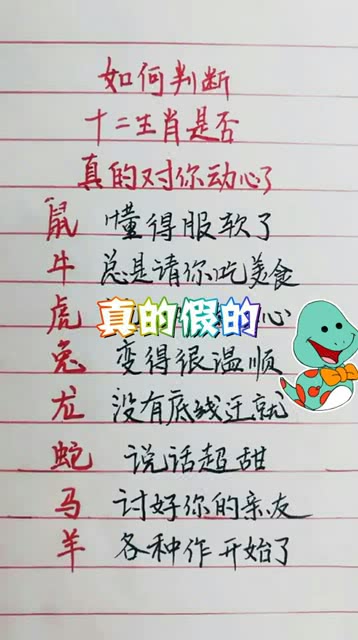 如何判断
十二生肖是否
真的对你动心了
鼠 懂得服软了
牛 总是请你吃美食
虎 心
真的假的
兔 变得很温顺
龙 没有底线迁就
蛇 说话超甜
马 讨好你的亲友
羊 各种作开始了